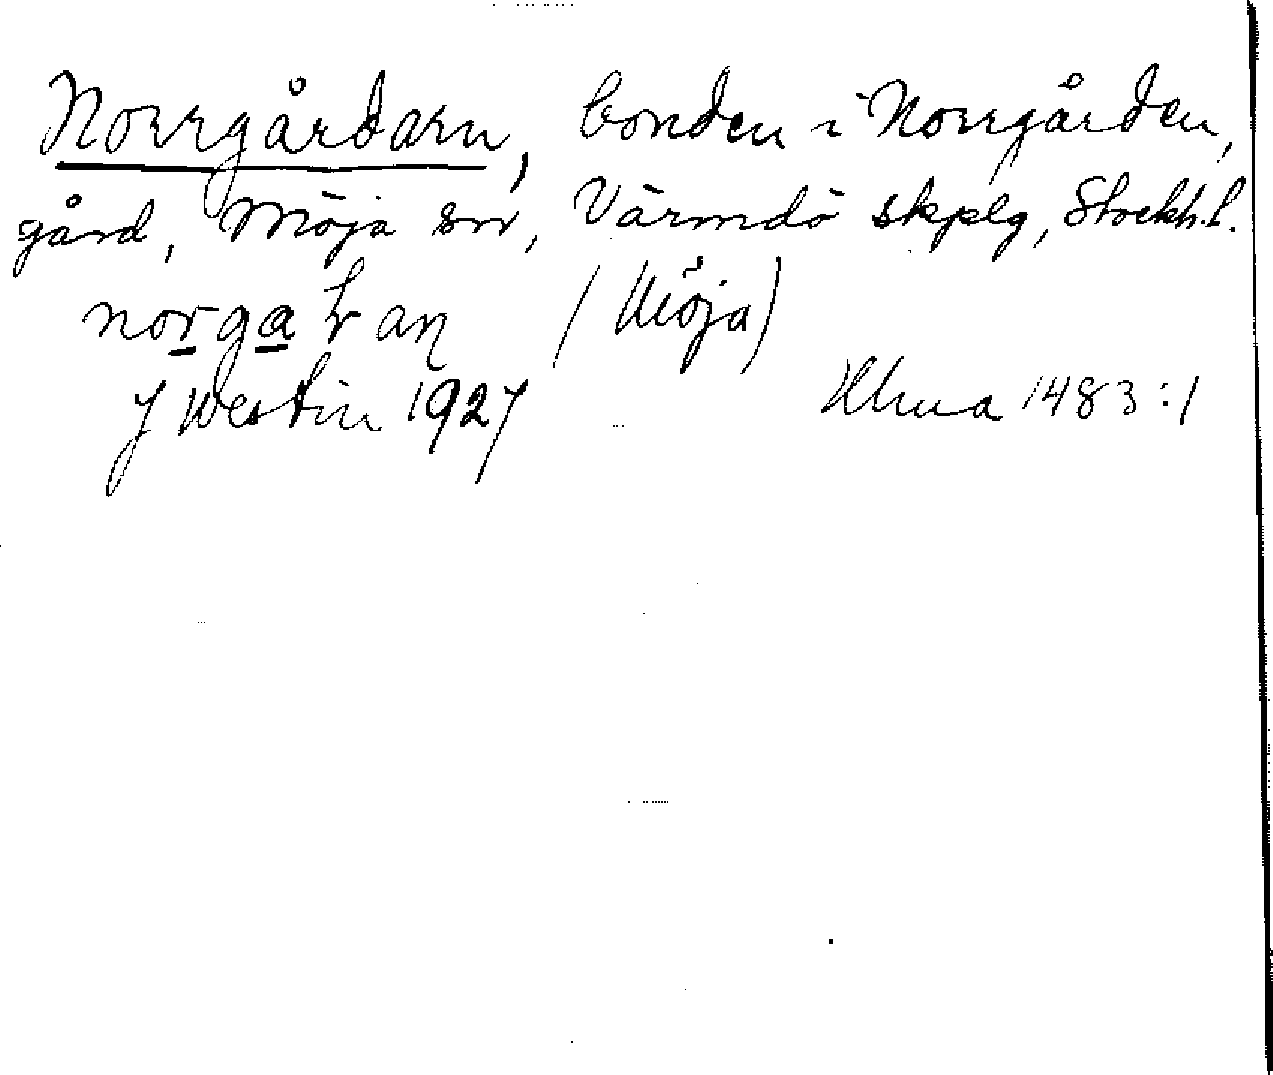 Norrgårdarn, bonden i Norrgården,
gård, Möja sn, Värmdö skplg, Stockh. l.
(Möja)
J Westin 1927 Ulma 1483:1